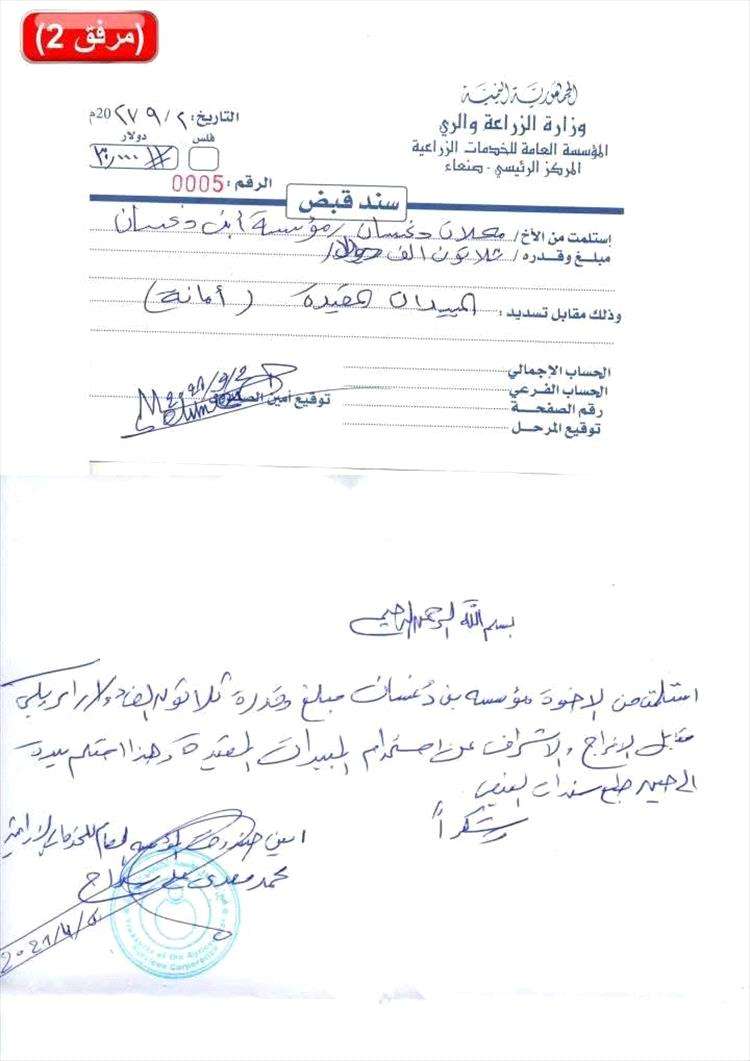 (مرفق 2)
الجمهورية اليمنية
وزارة الزراعة والري
المؤسسة العامة للخدمات الزراعية
المركز الرئيسي - صنعاء
التاريخ: ٢ / ٩ / 20م
فلس دولار
٣٠,٠٠٠
الرقم: 0005
سند قبض
إستلمت من الأخ/ محلات دغسان / مؤسسة ابن دغسان
مبلغ وقدره / ثلاثون الف دولار
وذلك مقابل تسديد: المبيدات المقيدة (أمانة)
الحساب الإجمالي
الحساب الفرعي
رقم الصفحة
توقيع المرحل
توقيع أمين الصندوق
بسم الله الرحمن الرحيم
استلمت من الاخوة مؤسسه بن دغسان مبلغ وقدرة ثلاثون الف دولار امريكي
مقابل الافراج والاشراف عن استخدام المبيدات المقيدة وهذا استلام بيدي
الى حين طبع سندات القبض
وشكراً
امين صندوق المؤسسه العامه للخدمات الزراعية
محمد مهدي علي